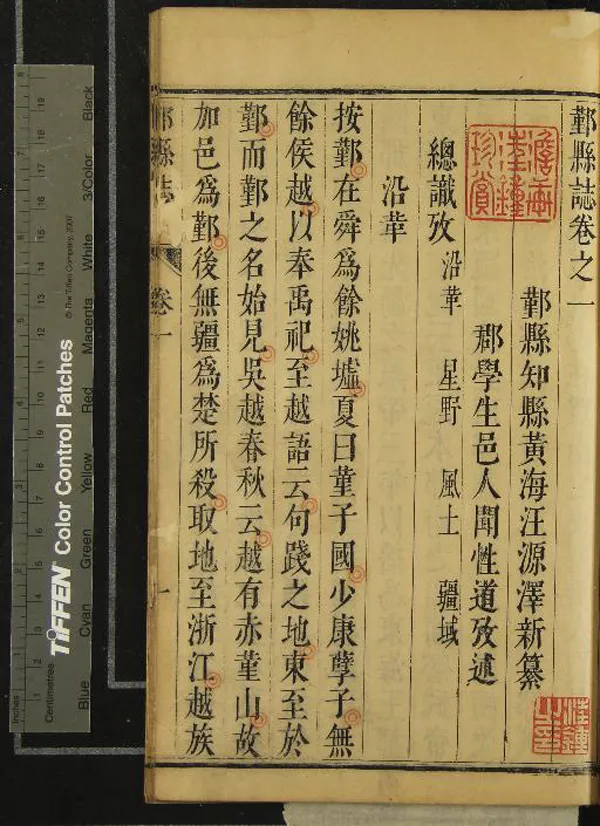 鄞縣誌卷之一
鄞縣知縣黃海汪源澤新纂
郡學生邑人聞性道攷述
總識攷 沿革 星野 風土 疆域
沿革
按鄞在舜為餘姚墟夏曰堇子國少康孽子無
餘侯越以奉禹祀至越語云句踐之地東至於
鄞而鄞之名始見吳越春秋云越有赤堇山故
加邑為鄞後無疆為楚所殺取地至浙江越族
鄞縣誌 卷一 一
珍賞
Inches
Centimetres
TIFFEN Color Control Patches
© The Tiffen Company, 2007
Blue Cyan Green Yellow Red Magenta White 3/Color Black